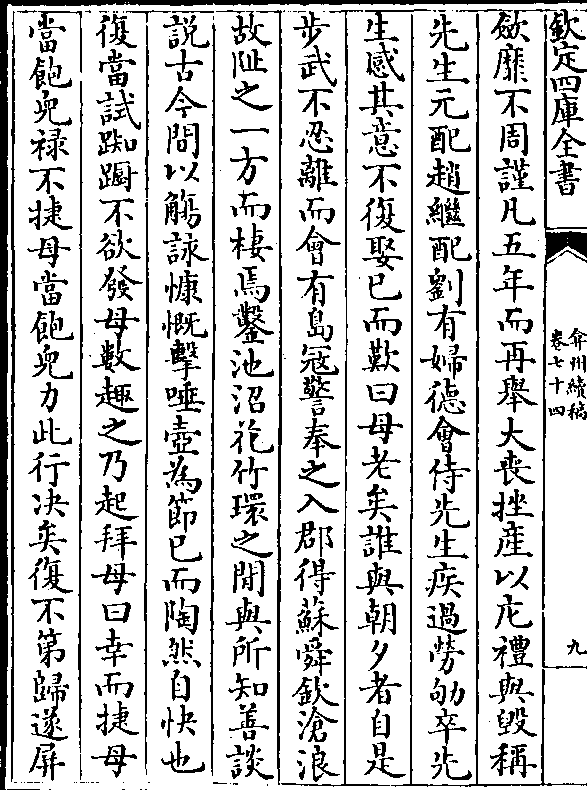 欽定四庫全書
弇州續稿
卷七十四
九
斂靡不周謹凡五年而再舉大喪挫産以庀禮與毀稱
先生元配趙繼配劉有婦德會侍先生疾過勞劬卒先
生感其意不復娶已而歎曰母老矣誰與朝夕者自是
步武不忍離而會有島冦警奉之入郡得蘇舜欽滄浪
故阯之一方而棲焉鑿池沼花竹環之間與所知善談
説古今間以觴詠慷慨擊唾壺為節已而陶然自快也
復當試踟躕不欲發母數趣之乃起拜母曰幸而捷母
當飽兒禄不捷母當飽兒力此行決矣復不第歸遂屏